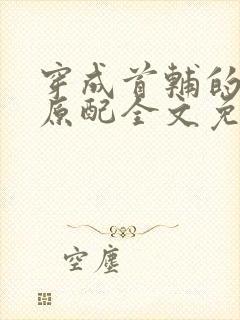 穿成首辅的
原配全文免
空尘